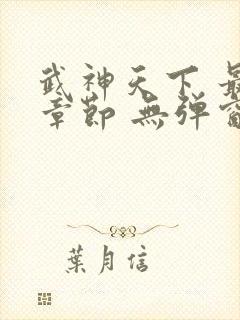 武神天下 最
章節 無弹窗
葉月信